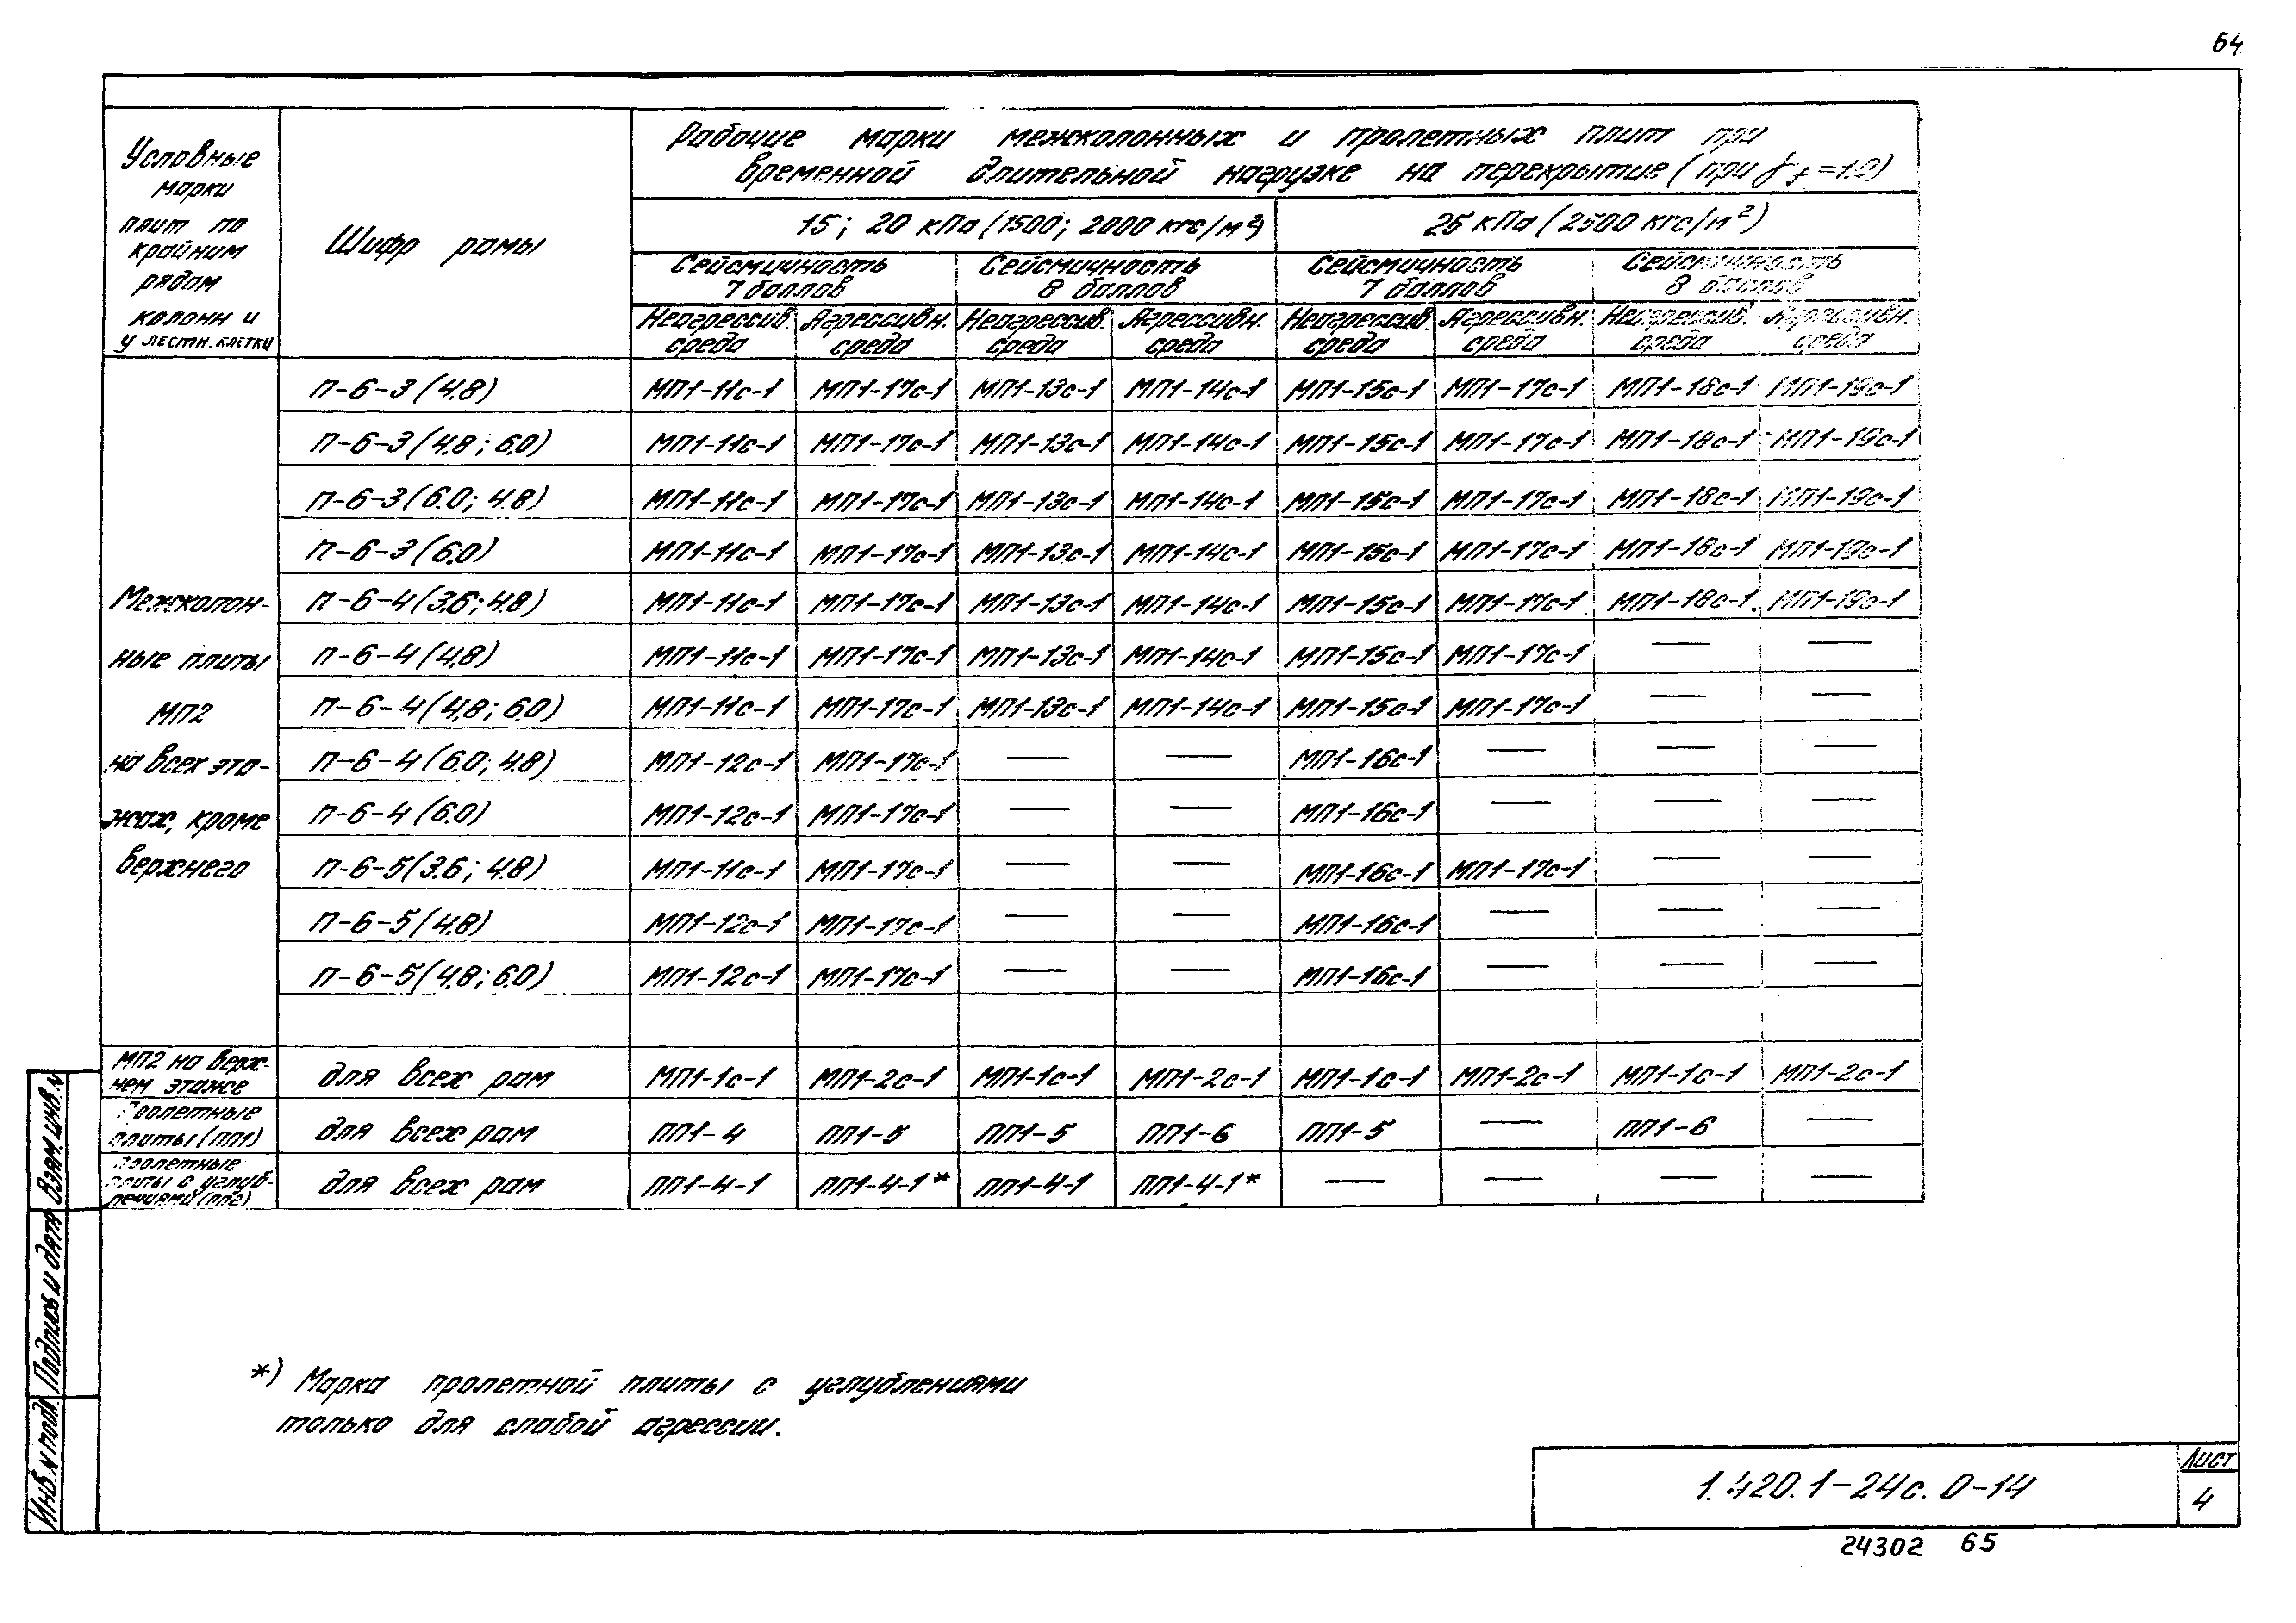 64
Условные
марки
плит по
крайним
рядам
колонн и
у лестн. клетки
Шифр рамы
Рабочие марки межколонных и пролетных плит при
временной длительной нагрузке на перекрытие (при γf = 1.0)
15; 20 кПа (1500; 2000 кгс/м²)
25 кПа (2500 кгс/м²)
Сейсмичность
7 баллов
Сейсмичность
8 баллов
Сейсмичность
7 баллов
Сейсмичность
8 баллов
Неагрессив. среда
Агрессивн. среда
Неагрессив. среда
Агрессивн. среда
Неагрессив. среда
Агрессивн. среда
Неагрессив. среда
Агрессивн. среда
Межколон-
ные плиты
МП2
на всех эта-
жах, кроме
верхнего
П-6-3 (4.8) МП1-11с-1 МП1-17с-1 МП1-13с-1 МП1-14с-1 МП1-15с-1 МП1-17с-1 МП1-18с-1 МП1-19с-1
П-6-3 (4.8; 6.0) МП1-11с-1 МП1-17с-1 МП1-13с-1 МП1-14с-1 МП1-15с-1 МП1-17с-1 МП1-18с-1 МП1-19с-1
П-6-3 (6.0; 4.8) МП1-11с-1 МП1-17с-1 МП1-13с-1 МП1-14с-1 МП1-15с-1 МП1-17с-1 МП1-18с-1 МП1-19с-1
П-6-3 (6.0) МП1-11с-1 МП1-17с-1 МП1-13с-1 МП1-14с-1 МП1-15с-1 МП1-17с-1 МП1-18с-1 МП1-19с-1
П-6-4 (3.6; 4.8) МП1-11с-1 МП1-17с-1 МП1-13с-1 МП1-14с-1 МП1-15с-1 МП1-17с-1 МП1-18с-1 МП1-19с-1
П-6-4 (4.8) МП1-11с-1 МП1-17с-1 МП1-13с-1 МП1-14с-1 МП1-15с-1 МП1-17с-1 — —
П-6-4 (4.8; 6.0) МП1-11с-1 МП1-17с-1 МП1-13с-1 МП1-14с-1 МП1-15с-1 МП1-17с-1 — —
П-6-4 (6.0; 4.8) МП1-12с-1 МП1-17с-1 — — МП1-16с-1 — — —
П-6-4 (6.0) МП1-12с-1 МП1-17с-1 — — МП1-16с-1 — — —
П-6-5 (3.6; 4.8) МП1-11с-1 МП1-17с-1 — — МП1-16с-1 МП1-17с-1 — —
П-6-5 (4.8) МП1-12с-1 МП1-17с-1 — — МП1-16с-1 — — —
П-6-5 (4.8; 6.0) МП1-12с-1 МП1-17с-1 — — МП1-16с-1 — — —
МП2 на верх-
нем этаже
для всех рам МП1-1с-1 МП1-2с-1 МП1-1с-1 МП1-2с-1 МП1-1с-1 МП1-2с-1 МП1-1с-1 МП1-2с-1
Пролетные
плиты (ПП1)
для всех рам ПП1-4 ПП1-5 ПП1-5 ПП1-6 ПП1-5 — ПП1-6 —
Пролетные
плиты с углуб-
лениями (ПП2)
для всех рам ПП1-4-1 ПП1-4-1* ПП1-4-1 ПП1-4-1* — — — —
*) Марка пролетной плиты с углублениями
только для слабой агрессии.
Инв. N подл. Подпись и дата Взам. инв. N
1.420.1-24с. 0-14
Лист
4
24302 65